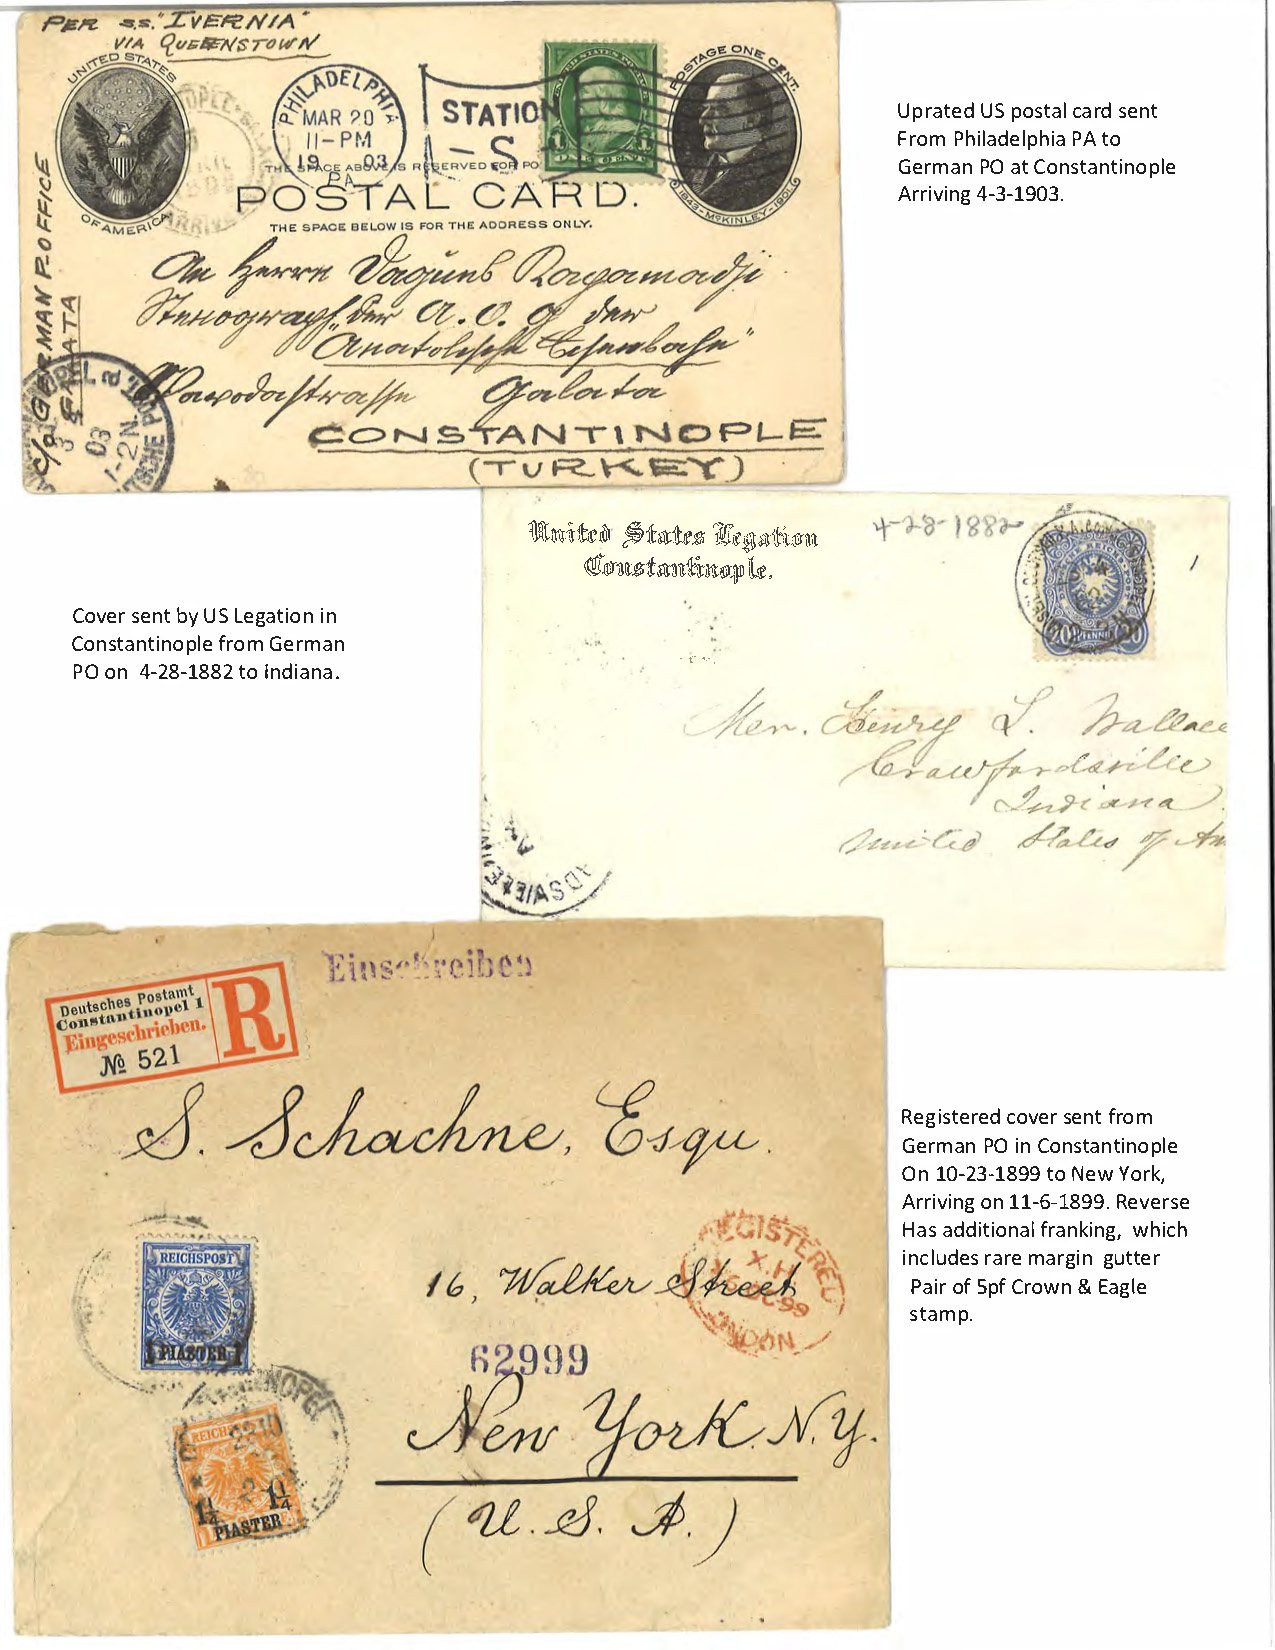 PER S.S. "IVERNIA"
VIA QUEENSTOWN
UNITED STATES
OF AMERICA
PHILADELPHIA
MAR 20
11-PM
19 03
PA
STATION
S
POSTAGE ONE CENT.
1843-McKINLEY-1901
THE SPACE ABOVE IS RESERVED FOR PO
POSTAL CARD.
THE SPACE BELOW IS FOR THE ADDRESS ONLY.
c/o GERMAN P. OFFICE
GALATA
An Herrn
Stenograph der A. O. G der
"Anatolische Eisenbahn"
Galata
CONSTANTINOPLE
(TURKEY)
03
1-2N.
Uprated US postal card sent
From Philadelphia PA to
German PO at Constantinople
Arriving 4-3-1903.
United States Legation
Constantinople.
4-28-1882
Henry L. Wallace
Crawfordsville
Indiana
United States of Am
Cover sent by US Legation in
Constantinople from German
PO on 4-28-1882 to Indiana.
Einschreiben
Deutsches Postamt
Constantinopel 1
Eingeschrieben.
№ 521
R
S. Schachne, Esqu.
REICHSPOST
1 PIASTER 1
REGISTERED
OC 99
LONDON
16, Walker Street
62999
New York. N. Y.
(U. S. A.)
REICHSPOST
1¼ 1¼
PIASTER
Registered cover sent from
German PO in Constantinople
On 10-23-1899 to New York,
Arriving on 11-6-1899. Reverse
Has additional franking, which
includes rare margin gutter
Pair of 5pf Crown & Eagle
stamp.